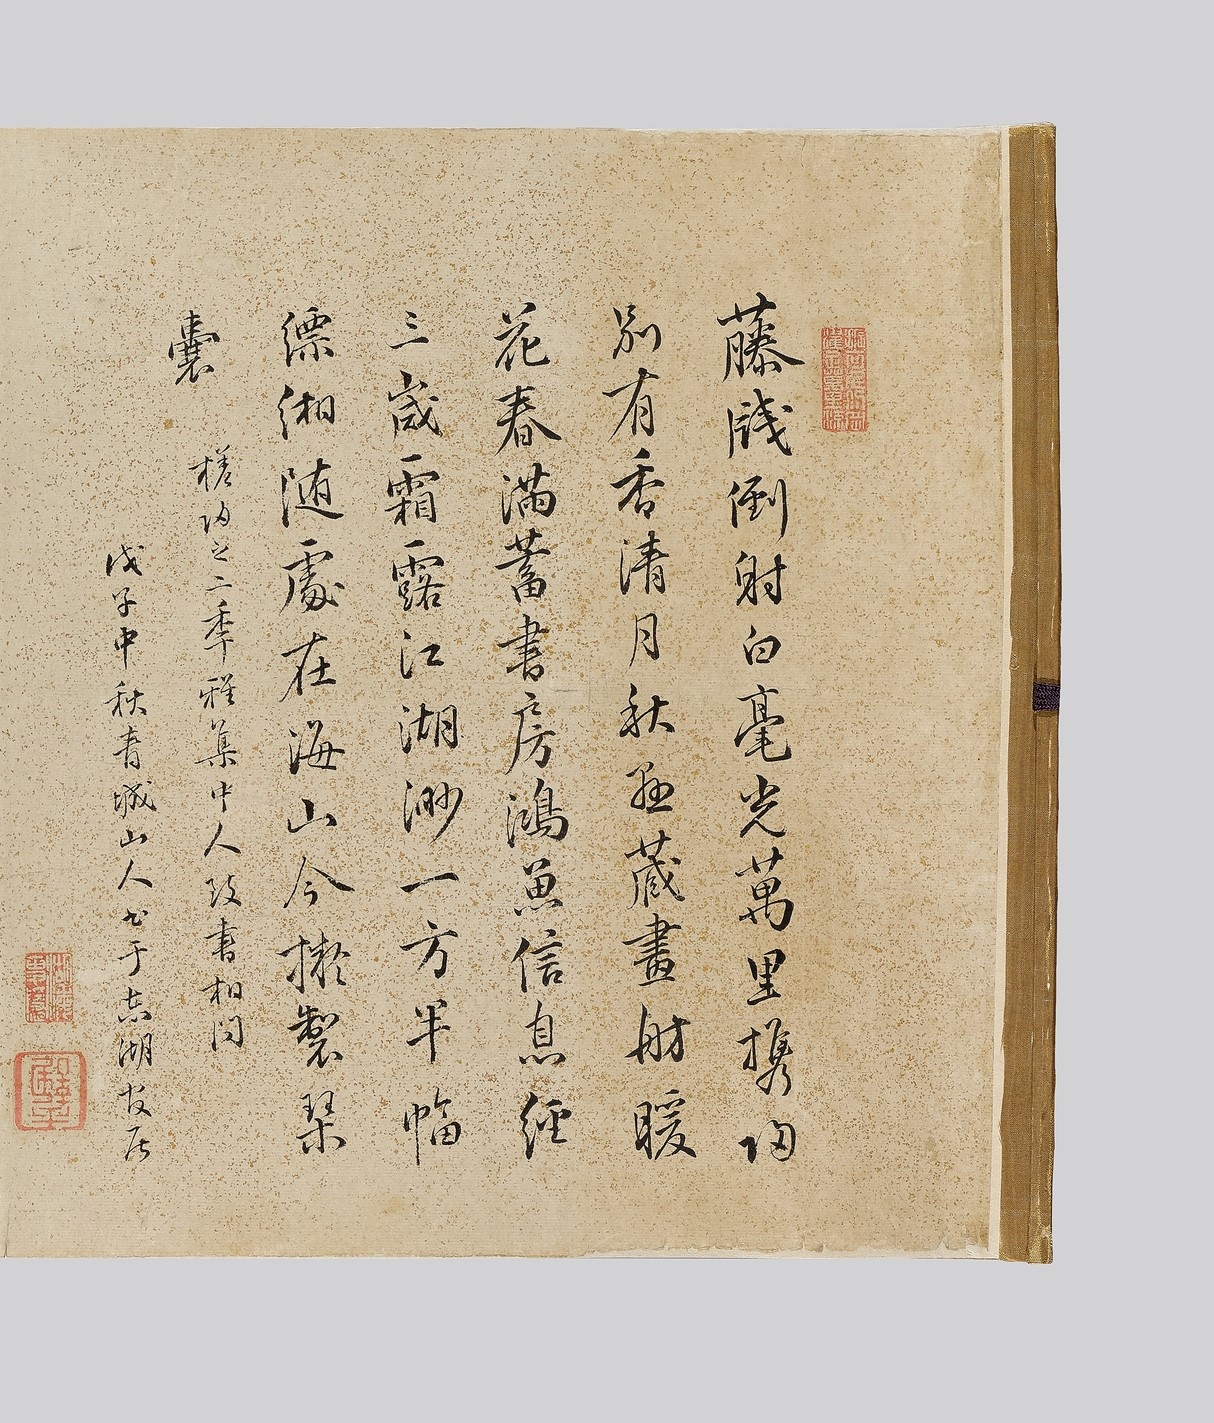 藤牋倒射白毫光萬里携歸
別有香清月秋懸藏畫舫暖
花春滿蓄書房鴻魚信息經
三歲霜露江湖渺一方半幅
縹緗随處在海山今擬製琹
囊
槎歸之二季雅集中人致書相問
戊子中秋青城山人書于湖居